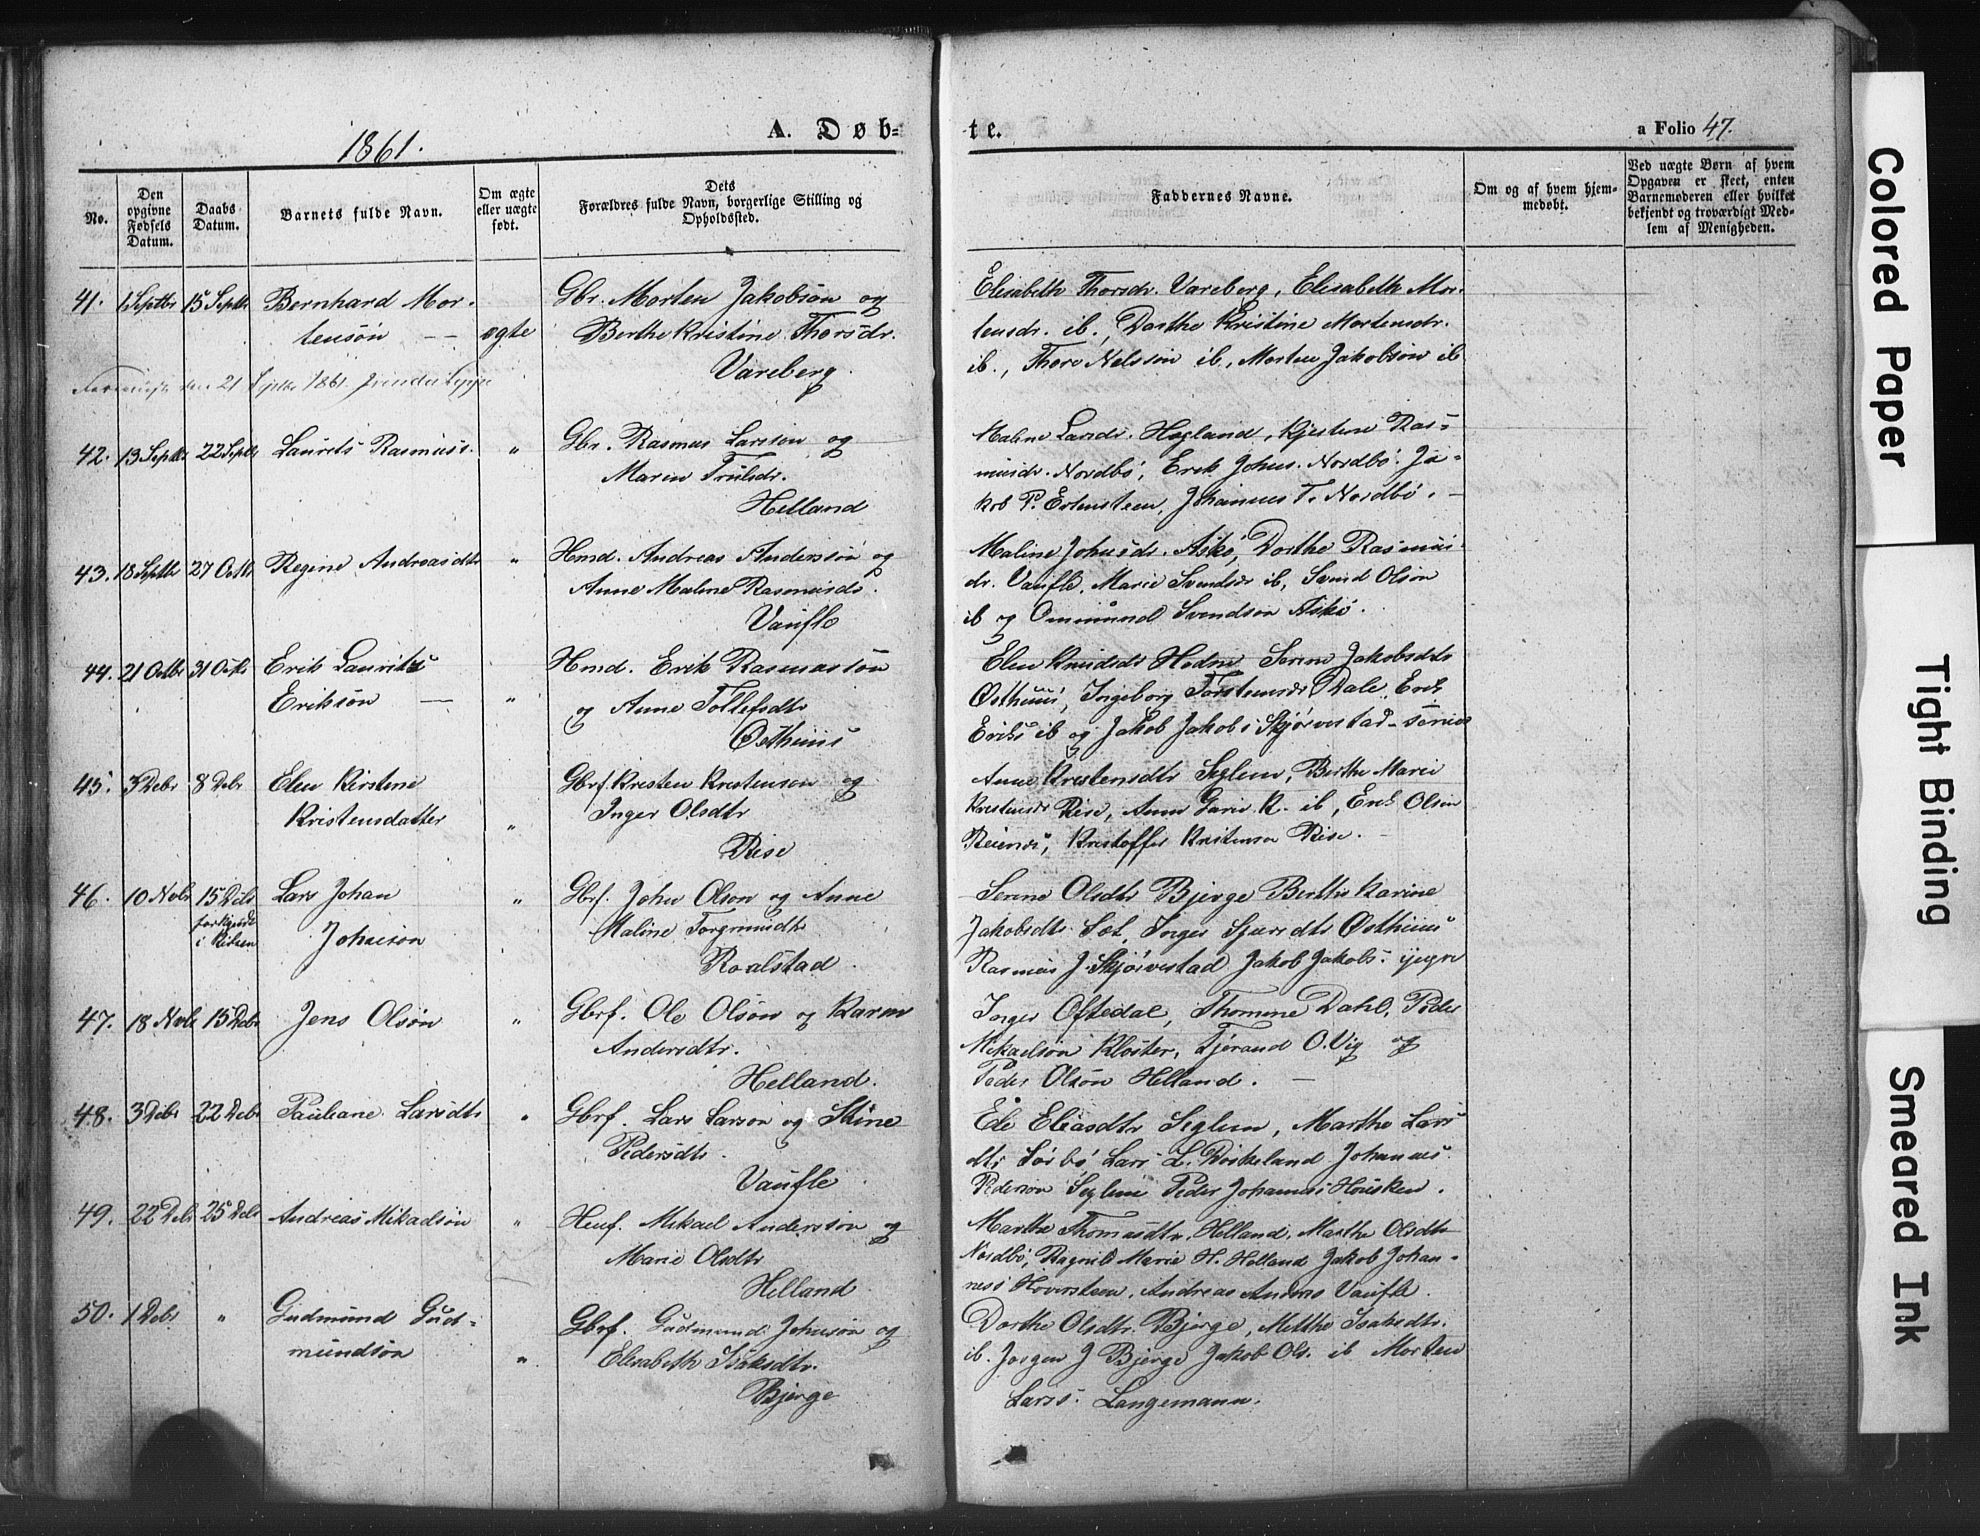 1861.
A. Døb-
te.
a Folio 47.
No.
Den opgivne Fødsels Datum.
Daabs Datum.
Barnets fulde Navn.
Om ægte eller uægte født.
Dets Forældres fulde Navn, borgerlige Stilling og Opholdssted.
Faddernes Navne.
Om og af hvem hjemmedøbt.
Ved uægte Børn af hvem Opgaven er skeet, enten Barnemoderen eller hvilket bekjendt og troværdigt Medlem af Menigheden.
41. 1 Septbr 15 Septbr Bernhard Mor-
tensön — ægte
Gbr. Morten Jakobson og
Berthe Kristine Thorsdr.
Vareberg.
den 21 1861.
Elisabeth Thorsdr. Vareberg, Elisabeth Mor-
tensdr. ib., Dorthe Kristine Mortensdr.
ib., Thore Nelsson ib., Morten Jakobson ib
42. 13 Septbr 22 Septbr Laurits Rasmuss. "
Gbr. Rasmus Larsson og
Maren Trulsdr.
Helland
Maline Larsdr. Hogland, Kjestene Ras-
musdr. Nordbö, Erik Johns. Nordbö. Ja-
kob P. Ertensteen, Johannes T. Nordbö. —
43. 18 Septbr 27 Octbr Regine Andreasdtr "
Hmd. Andreas Andersson og
Anne Maline Rasmusdr.
Vaufle
Maline Johnsdr. Askö, Dorthe Rasmus-
dr. Vaufle, Marie Svendsdr ib, Svend Olson
ib og Ommund Svendson Askö.
44. 21 Octbr 31 Octbr Erik Laurits
Eriksön — "
Hmd. Erik Rasmusson
og Anne Tollefsdtr
Østhuus
Elen Knudsdr Hodne Serine Jakobsdtr
Østhuus, Ingeborg Torstensdr Dale, Erik
Eriks ib og Jakob Jakobs Skjörvestad senior
45. 3 Debr 8 Debr Elen Kirstene
Kristensdatter "
Gbrf. Kresten Kristenson og
Inger Olsdtr
Rise
Anne Krestensdtr Seglem, Berthe Marie
Kristensdr Rise, Anne Garie K. ib, Erik Olson
Kristoffer Kristenson Rise. —
46. 10 Nobr 15 Debr Lars Johan "
i Kirken Johnsön
Gbrf. John Olson og Anne
Maline Torgrimsdtr
Roalstad
Serine Olsdtr Bjerge Berthe Karine
Jakobsdtr Sæt, Inger Sjursdtr Østhuus
Rasmus J. Skjörvestad Jakob Jakobs. yngre
47. 18 Nobr 15 Debr Jens Olsön "
Gbrf. Ole Olsön og Karen
Andersdtr.
Helland.
Inger Oftedal, Thomine Dahl, Peder
Mikaelsön Kloster, Tjerand O. Vig og
Peder Olsön Helland. —
48. 3 Debr 22 Debr Pauliane Larsdtr "
Gbrf. Lars Larson og Stine
Pedersdtr.
Vaufle
Ele Eliasdtr Seglem, Marthe Lars
dtr Sörbö, Lars L. Dirkeland Johannes
Pederson Seglem Peder Johannes Housken.
49. 22 Debr 25 Debr Andreas Mikaelson "
Huf. Mikael Andersson og
Marie Olsdtr
Helland
Marthe Thomasdtr. Helland, Marthe Olsdtr
Nordbö, Ragnild Marie H. Helland Jakob Johan-
ness Hoversteen, Andreas Anders Vaufle.
50. 1 Debr " Gudmund Gud-
mundsön "
Gbrf. Gudmund Johnson og
Elisabeth Isaksdtr.
Bjerge
Dorthe Olsdtr. Bjerge, Metthe Isaksdtr.
ib. Jorgen J Bjerge Jakob Ols. ib Morten
Larss. Langemann.
Colored Paper
Tight Binding
Smeared Ink